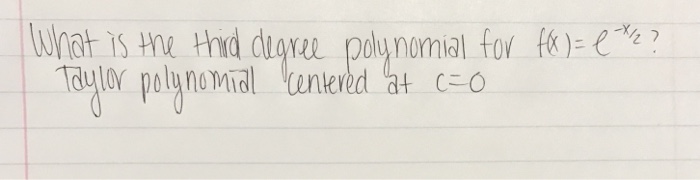 What is the third degree polynomial for f(x) = e^-x/2 ?
Taylor polynomial centered at c=0